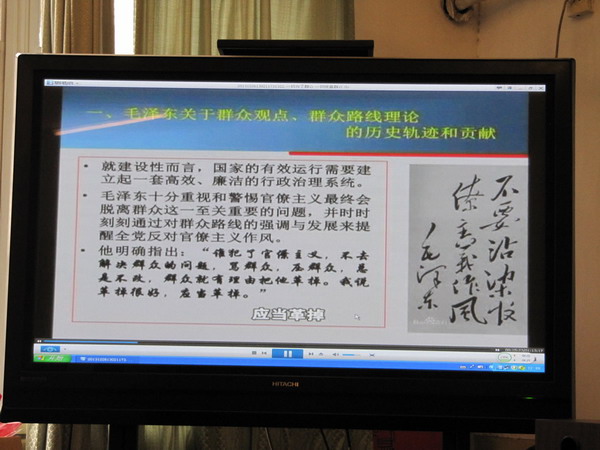 一、毛泽东关于群众观点、群众路线理论
的历史轨迹和贡献
• 就建设性而言，国家的有效运行需要建
立起一套高效、廉洁的行政治理系统。
• 毛泽东十分重视和警惕官僚主义最终会
脱离群众这一至关重要的问题，并时时
刻刻通过对群众路线的强调与发展来提
醒全党反对官僚主义作风。
• 他明确指出：“谁犯了官僚主义，不去
解决群众的问题，骂群众，压群众，总
是不改，群众就有理由把他革掉。我说
革掉很好，应当革掉。”
应当革掉
不要沾染
官僚主义作风
毛泽东
HITACHI